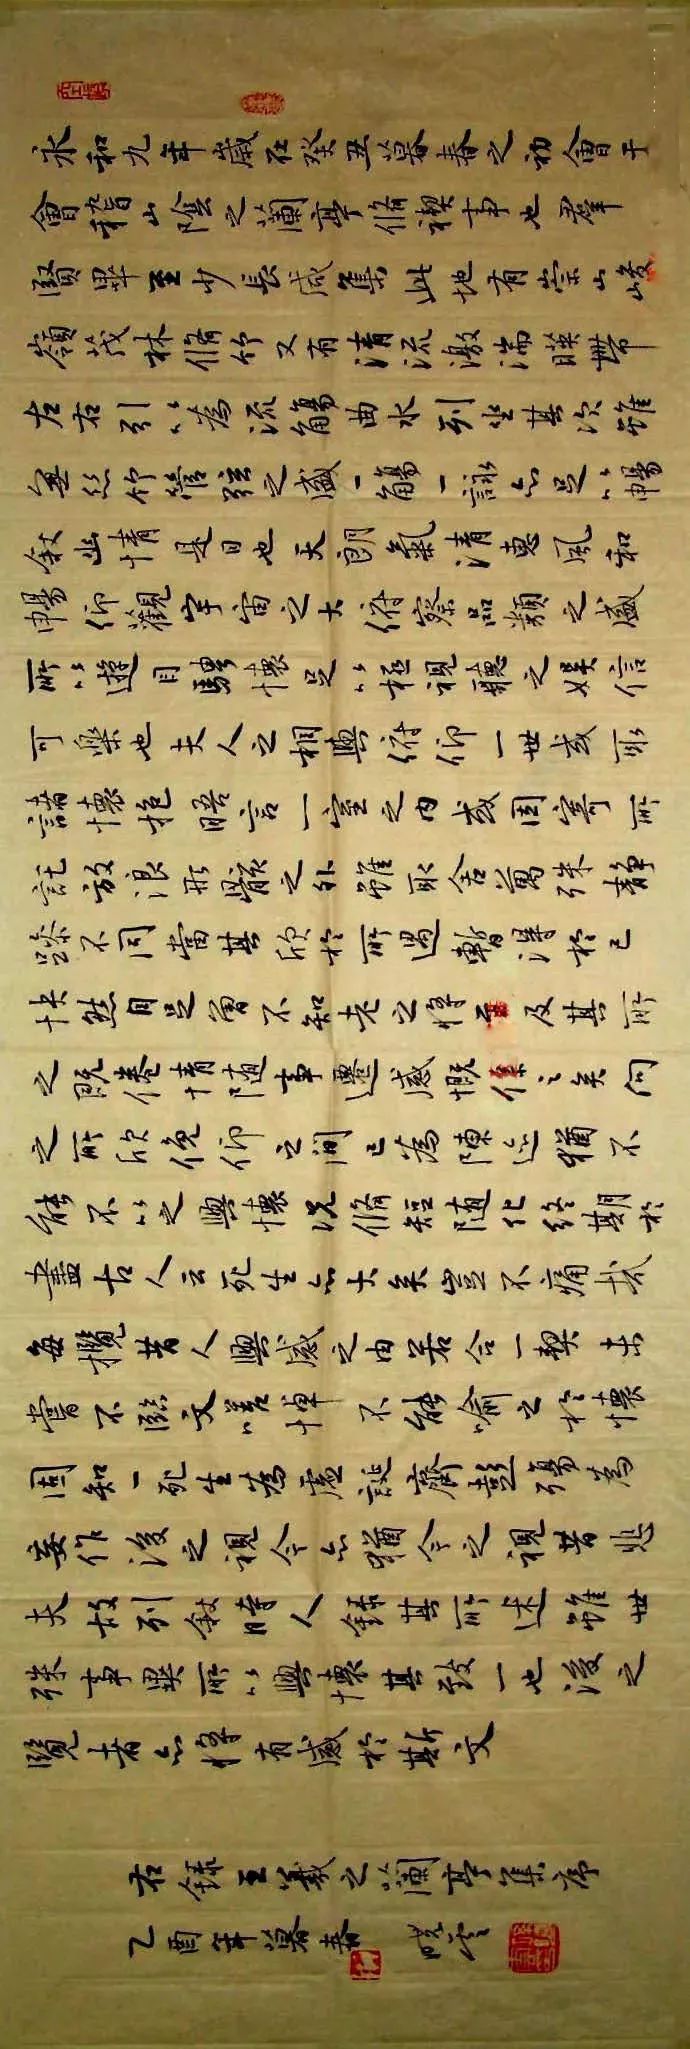 永和九年歲在癸丑暮春之初會于
會稽山陰之蘭亭脩禊事也羣
賢畢至少長咸集此地有崇山峻
嶺茂林脩竹又有清流激湍暎帶
左右引以為流觴曲水列坐其次雖
無絲竹管弦之盛一觴一詠亦足以暢
敘幽情是日也天朗氣清惠風和
暢仰觀宇宙之大俯察品類之盛
所以遊目騁懷足以極視聽之娛信
可樂也夫人之相與俯仰一世或取
諸懷抱晤言一室之內或因寄所
託放浪形骸之外雖取舍萬殊靜
躁不同當其欣於所遇暫得於己
怏然自足曾不知老之將至及其所
之既倦情隨事遷感慨係之矣向
之所欣俛仰之間已為陳迹猶不
能不以之興懷況脩短隨化終期於
盡古人云死生亦大矣豈不痛哉
每攬昔人興感之由若合一契未
嘗不臨文嗟悼不能喻之於懷
固知一死生為虛誕齊彭殤為
妄作後之視今亦猶今之視昔悲
夫故列敘時人錄其所述雖世
殊事異所以興懷其致一也後之
覽者亦將有感於斯文
右錄王羲之蘭亭集序
乙酉年暮春 曉雲